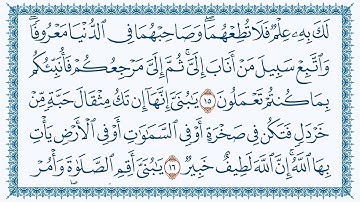 لَكَ بِهِۦ عِلۡمٞ فَلَا تُطِعۡهُمَاۖ وَصَاحِبۡهُمَا فِي ٱلدُّنۡيَا مَعۡرُوفٗاۖ
وَٱتَّبِعۡ سَبِيلَ مَنۡ أَنَابَ إِلَيَّۚ ثُمَّ إِلَيَّ مَرۡجِعُكُمۡ فَأُنَبِّئُكُم
بِمَا كُنتُمۡ تَعۡمَلُونَ ١٥ يَٰبُنَيَّ إِنَّهَآ إِن تَكُ مِثۡقَالَ حَبَّةٖ مِّنۡ
خَرۡدَلٖ فَتَكُن فِي صَخۡرَةٍ أَوۡ فِي ٱلسَّمَٰوَٰتِ أَوۡ فِي ٱلۡأَرۡضِ يَأۡتِ
بِهَا ٱللَّهُۚ إِنَّ ٱللَّهَ لَطِيفٌ خَبِيرٞ ١٦ يَٰبُنَيَّ أَقِمِ ٱلصَّلَوٰةَ وَأۡمُرۡ